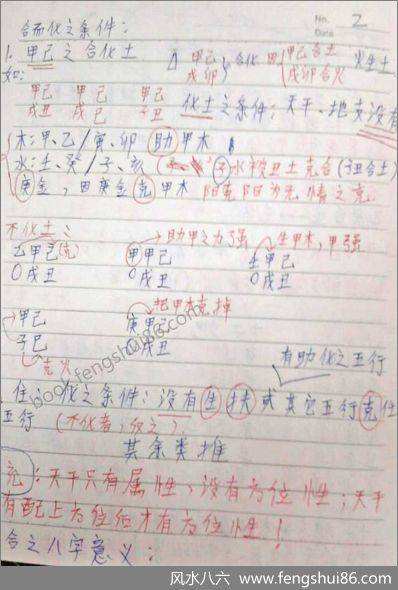 No. 2
Date
合而化之条件:
1. 甲己之合化土
△ 甲己 合化 甲己合土 火生土
戊卯 戊卯合火
如:
甲己 甲己 甲己
戌丑 戌丑 子丑
化土之条件:天干、地支没有
木:甲、乙/寅、卯 助甲木
水:壬、癸/子、亥 子水被丑土克合(子丑合土)
庚金,因庚金克甲木 阳克阳为无情之克
不化土:
乙甲己(克) 甲甲己 →助甲之力强 壬甲己 生甲木,甲强
0戌丑 0戌丑 0戌丑
甲己 庚甲己 →把甲木克掉
子巳 戌丑
克火
有助化之五行
住:化之条件:没有生扶或其它五行克住
五行 (不化者,反之)
其余类推
充:天干只有属性,没有方位性;天干
有配上方位后才有方位性!
合之八字意义:
book.fengshui86.com
风水八六 www.fengshui86.com